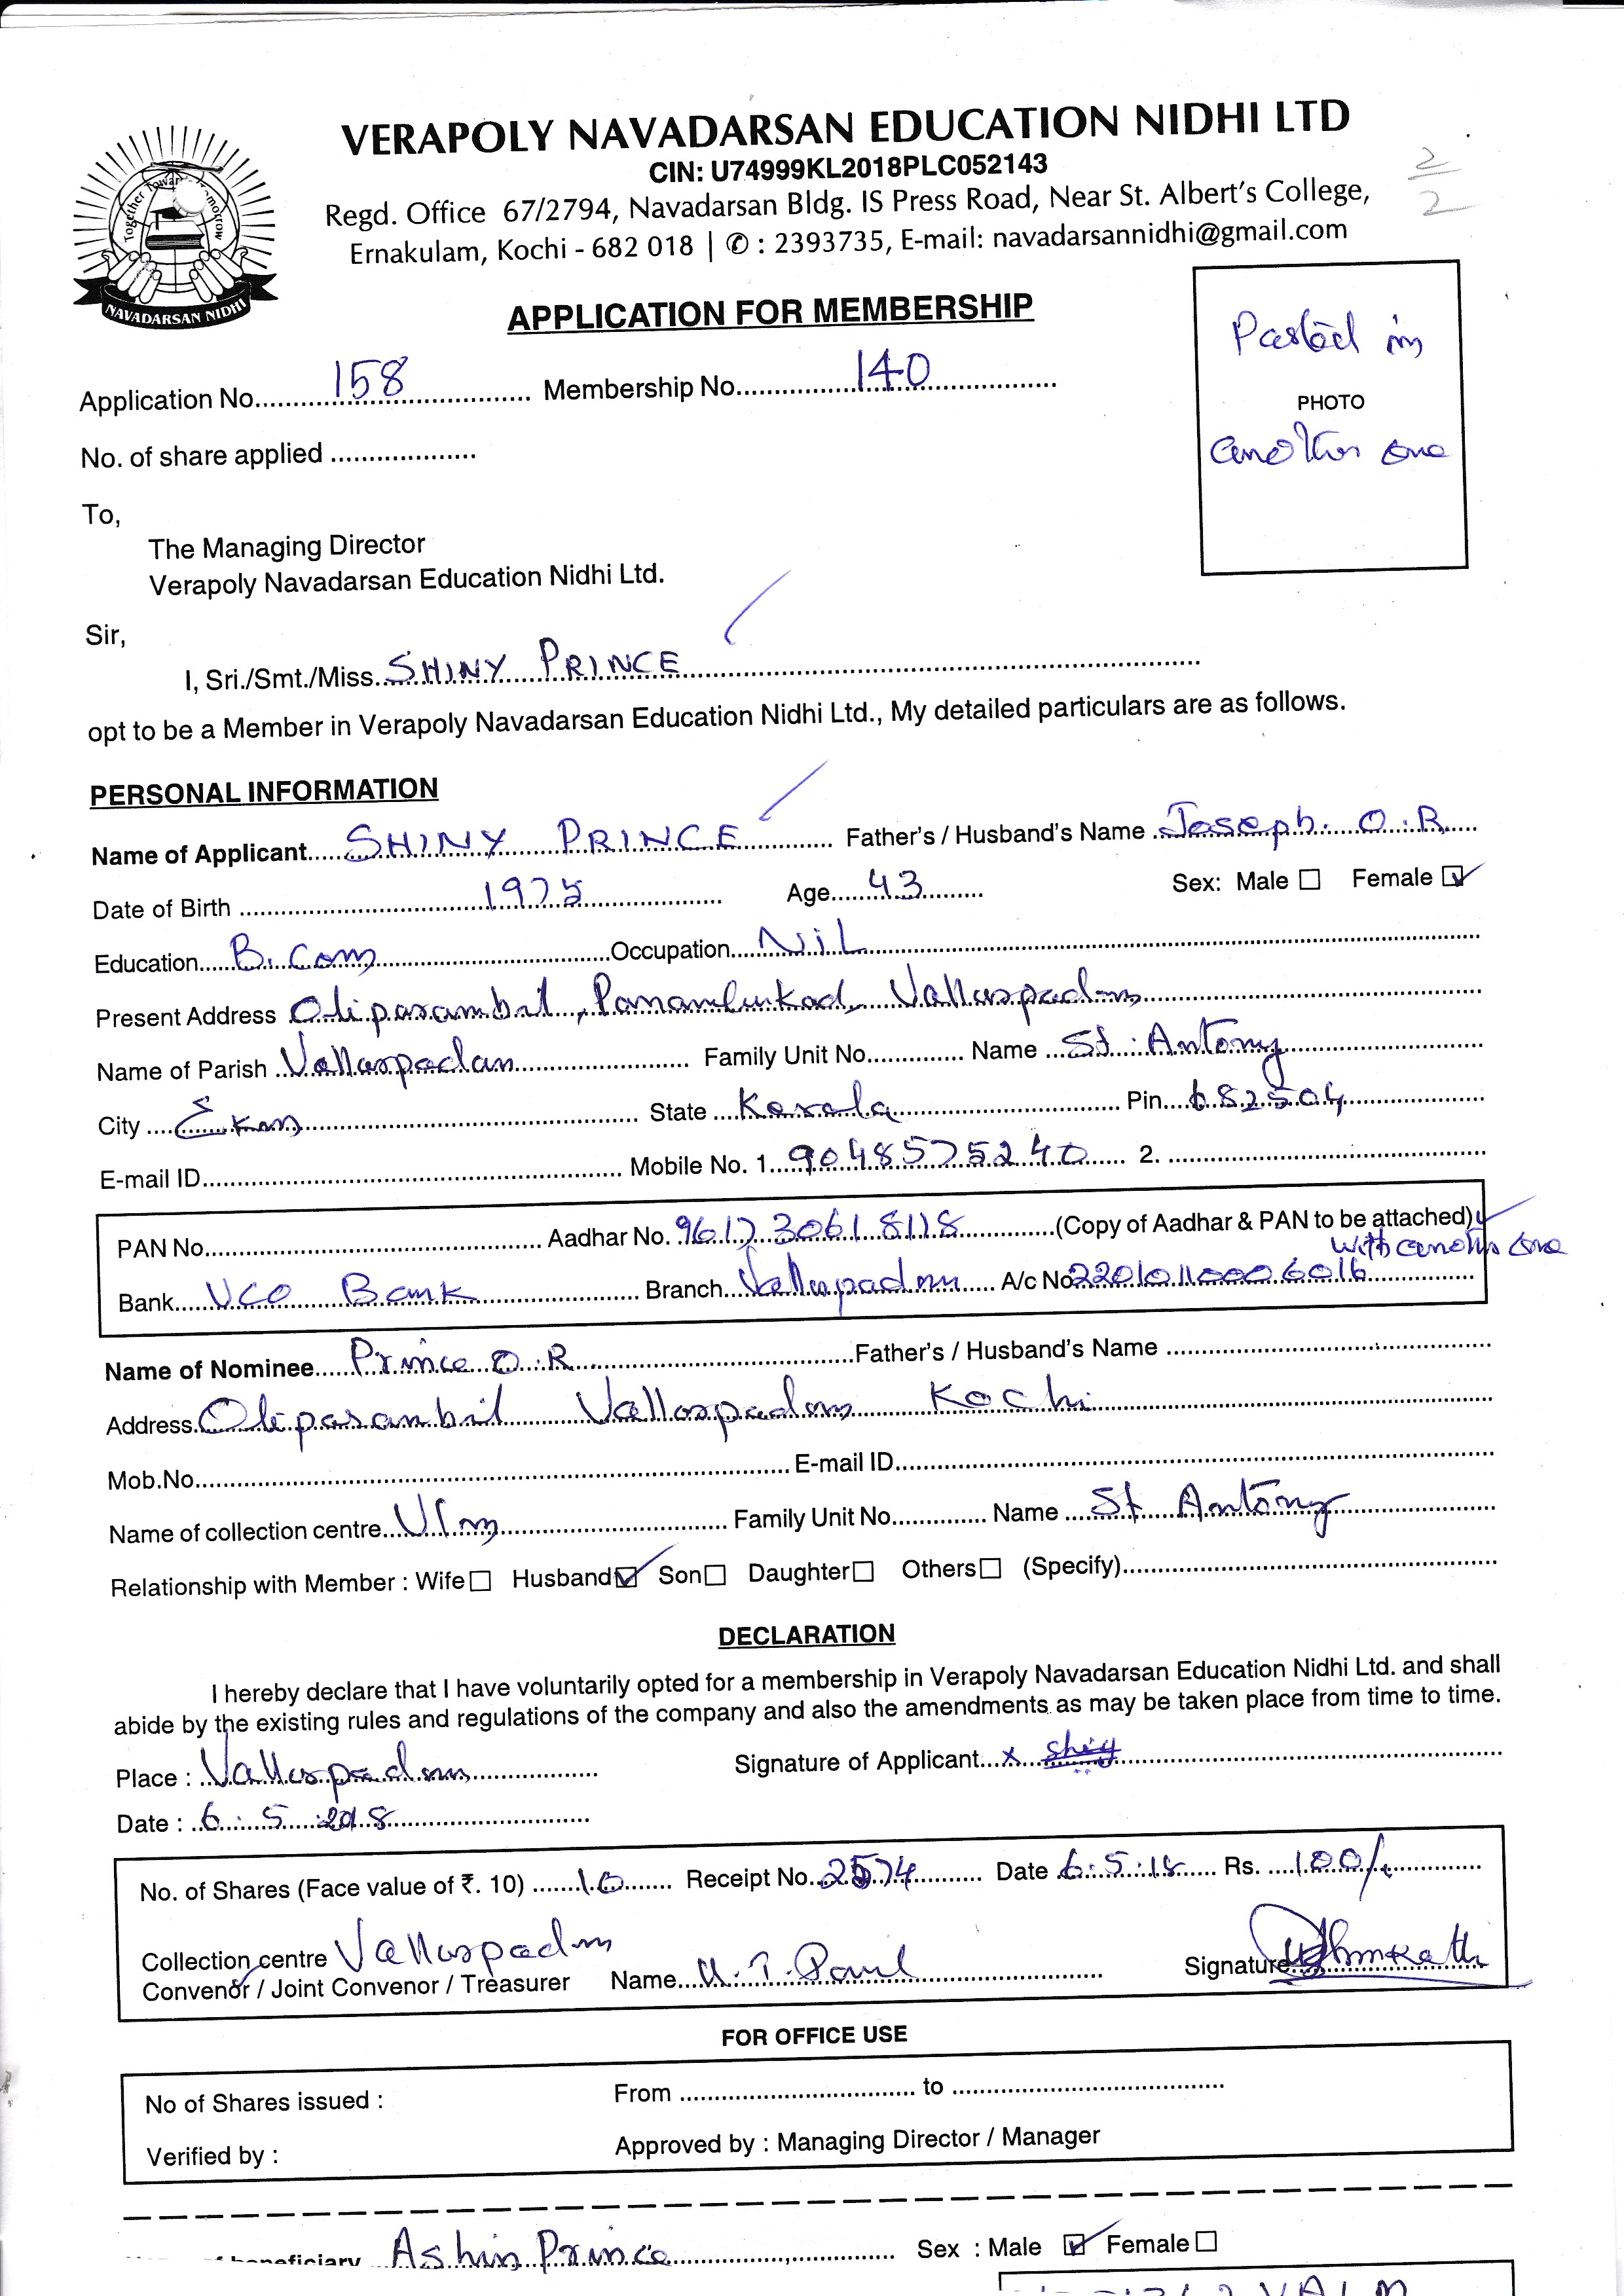 VERAPOLY NAVADARSAN EDUCATION NIDHI LTD
CIN: U74999KL2018PLC052143
Regd. Office 67/2794, Navadarsan Bldg. IS Press Road, Near St. Albert's College,
Ernakulam, Kochi - 682 018 | ✆ : 2393735, E-mail: navadarsannidhi@gmail.com
Together Towards Tomorrow
NAVADARSAN NIDHI
2/2
APPLICATION FOR MEMBERSHIP
Pasted in
PHOTO
another one
Application No. 158 Membership No. 140
No. of share applied
To,
The Managing Director
Verapoly Navadarsan Education Nidhi Ltd.
Sir,
I, Sri./Smt./Miss. SHINY PRINCE
opt to be a Member in Verapoly Navadarsan Education Nidhi Ltd., My detailed particulars are as follows.
PERSONAL INFORMATION
Name of Applicant SHINY PRINCE Father's / Husband's Name Joseph. O.R
Date of Birth 1975 Age 43 Sex: Male ☐ Female ☑
Education B.Com Occupation NiL
Present Address Oliparambil, Panambukad, Vallarpadam
Name of Parish Vallarpadam Family Unit No. Name St. Antony
City Ekm State Kerala Pin 682504
E-mail ID Mobile No. 1. 9048575240 2.
PAN No. Aadhar No. 9617 3061 8118 (Copy of Aadhar & PAN to be attached)
with another one
Bank UCO Bank Branch Vallarpadam A/c No 22010110006016
Name of Nominee Prince O.R Father's / Husband's Name
Address Oliparambil Vallarpadam Kochi
Mob.No. E-mail ID
Name of collection centre Vlm Family Unit No. Name St. Antony
Relationship with Member : Wife ☐ Husband ☑ Son ☐ Daughter ☐ Others ☐ (Specify)
DECLARATION
I hereby declare that I have voluntarily opted for a membership in Verapoly Navadarsan Education Nidhi Ltd. and shall
abide by the existing rules and regulations of the company and also the amendments as may be taken place from time to time.
Place : Vallarpadam Signature of Applicant x Shiny
Date : 6.5.2018
No. of Shares (Face value of ₹. 10) 10 Receipt No. 2574 Date 6.5.18 Rs. 100/-
Collection centre Vallarpadam
Convenor / Joint Convenor / Treasurer Name U.T. Paul Signature
FOR OFFICE USE
No of Shares issued : From to
Verified by : Approved by : Managing Director / Manager
beneficiary Ashin Prince Sex : Male ☑ Female ☐